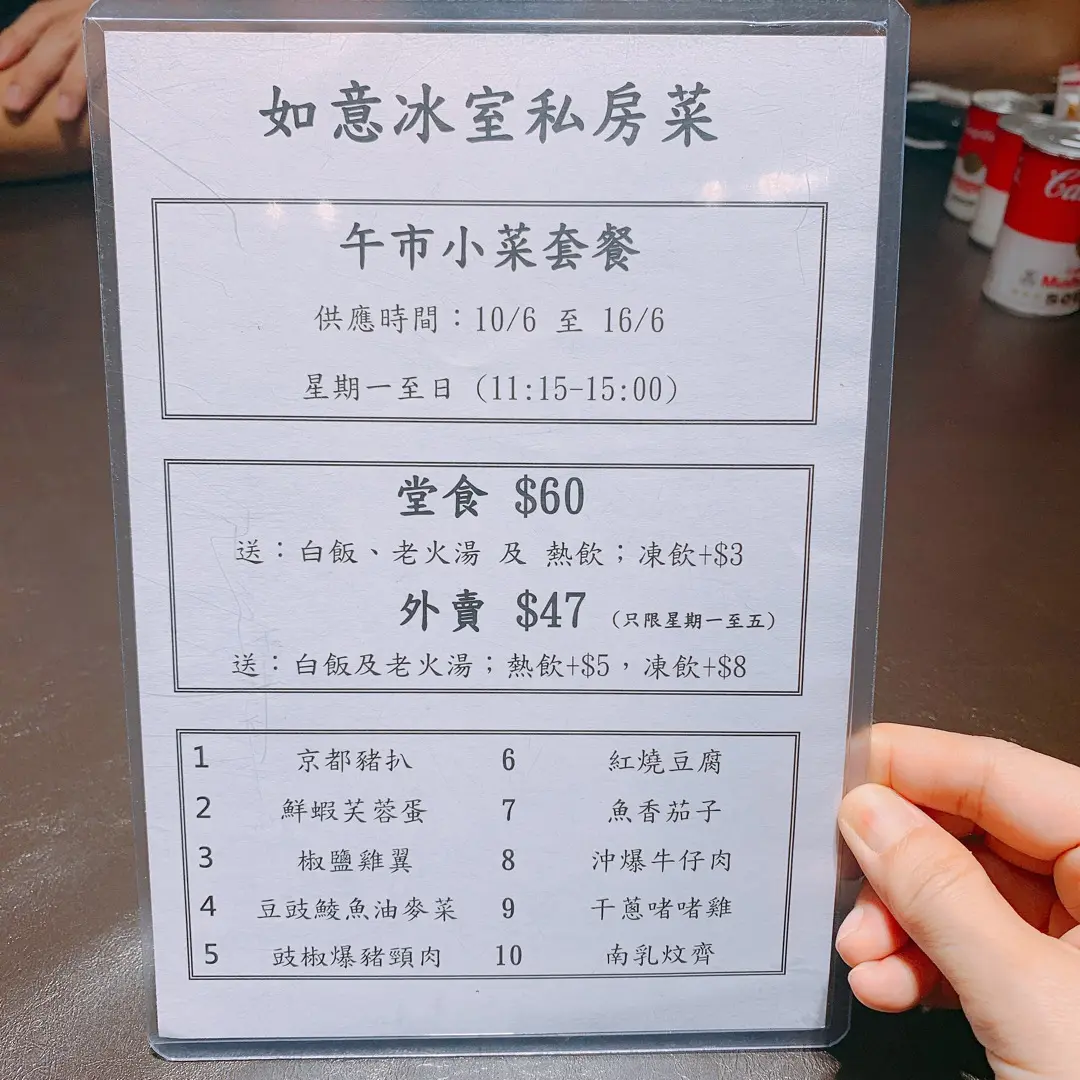 如意冰室私房菜
午市小菜套餐
供應時間：10/6 至 16/6
星期一至日 (11:15-15:00)
堂食 $60
送：白飯、老火湯 及 熱飲；凍飲+$3
外賣 $47 (只限星期一至五)
送：白飯及老火湯；熱飲+$5，凍飲+$8
1 京都豬扒 6 紅燒豆腐
2 鮮蝦芙蓉蛋 7 魚香茄子
3 椒鹽雞翼 8 沖爆牛仔肉
4 豆豉鯪魚油麥菜 9 干蔥啫啫雞
5 豉椒爆豬頸肉 10 南乳炆齊